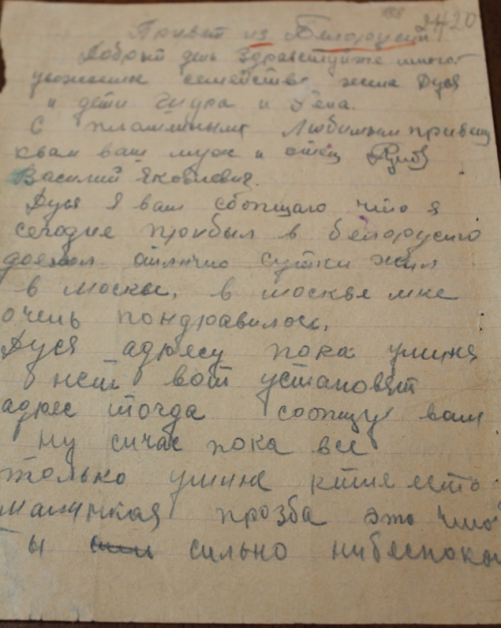 188 2420
Привет из Белоруссии!
Добрый день Здравствуйте много
уважаемые семейство жена Дуся
и дети Шура и Гена.
С пламенными Любимым привец
квам ваш муж и отец
Василий Яковлевич.
Дуся Я вам сбопщаю что я
сегодне прибыл в белорусию
доехал отлично сутки жил
в москве, в москве мне
очень пондравилось,
Дуся адресу пока умине
нет вот установят
адрес тогда соопщу вам
ну сичас пока все
только умине ктие есть
малинкая прозба это что
ты сильно нибеспокой